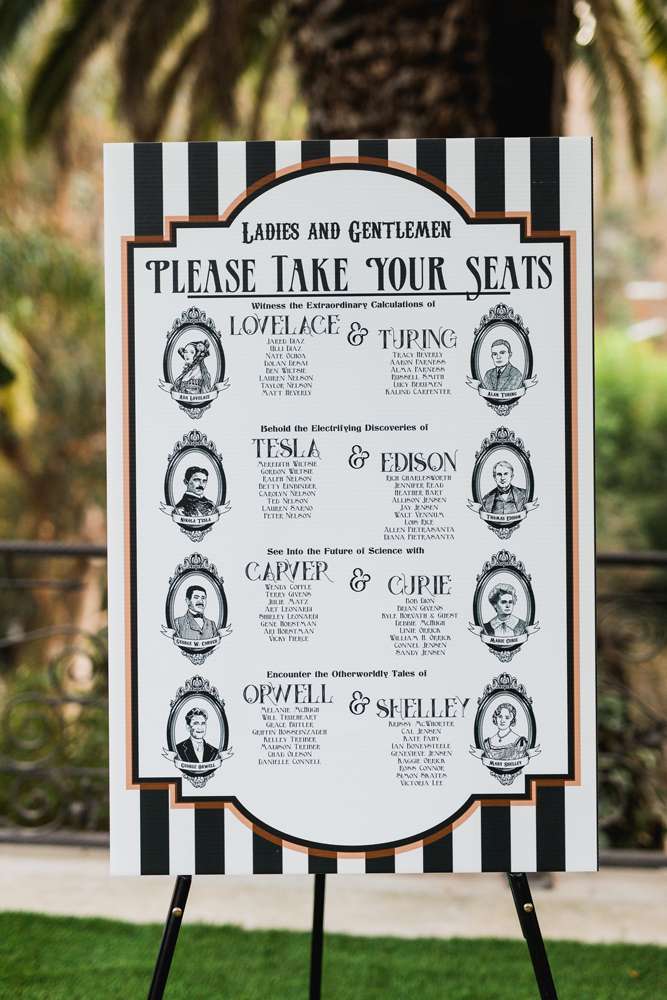 Ladies and Gentlemen
Please Take Your Seats
Witness the Extraordinary Calculations of
Lovelace & Turing
Jared Diaz
Ulli Diaz
Nate Ochoa
Dolan Desai
Ben Wiltsie
Lauren Nelson
Taylor Nelson
Matt Heverly
Tracy Heverly
Aaron Parness
Alma Parness
Russell Smith
Lucy Berthen
Kalind Carpenter
Ada Lovelace
Alan Turing
Behold the Electrifying Discoveries of
Tesla & Edison
Meredith Wiltsie
Gordon Wiltsie
Ralph Nelson
Betty Einbinder
Carolyn Nelson
Ted Nelson
Lauren Saeno
Peter Nelson
Rich Charlesworth
Jennifer Read
Heather Hart
Allison Jensen
Jay Jensen
Walt Vennum
Lois Rice
Allen Pietrasanta
Diana Pietrasanta
Nikola Tesla
Thomas Edison
See Into the Future of Science with
Carver & Curie
Wendy Coffle
Terry Givens
Julie Matz
Art Leonardi
Shirley Leonardi
Gene Horstman
Ari Horstman
Vicky Pierce
Bob Dion
Brian Givens
Kyle Horvath & Guest
Debbie McHugh
Linie Orrick
William H. Orrick
Connel Jensen
Sandy Jensen
George W. Carver
Marie Curie
Encounter the Otherworldly Tales of
Orwell & Shelley
Melanie McHugh
Will Trueheart
Grace Butler
Griffin Hosseinzadeh
Kelley Treiber
Madison Treiber
Chad Oleson
Danielle Connell
Krissy McWhorter
Cal Jensen
Kate Fahy
Ian Boneysteele
Genevieve Jensen
Maggie Orrick
Ross Connor
Simon Skates
Victoria Lee
George Orwell
Mary Shelley